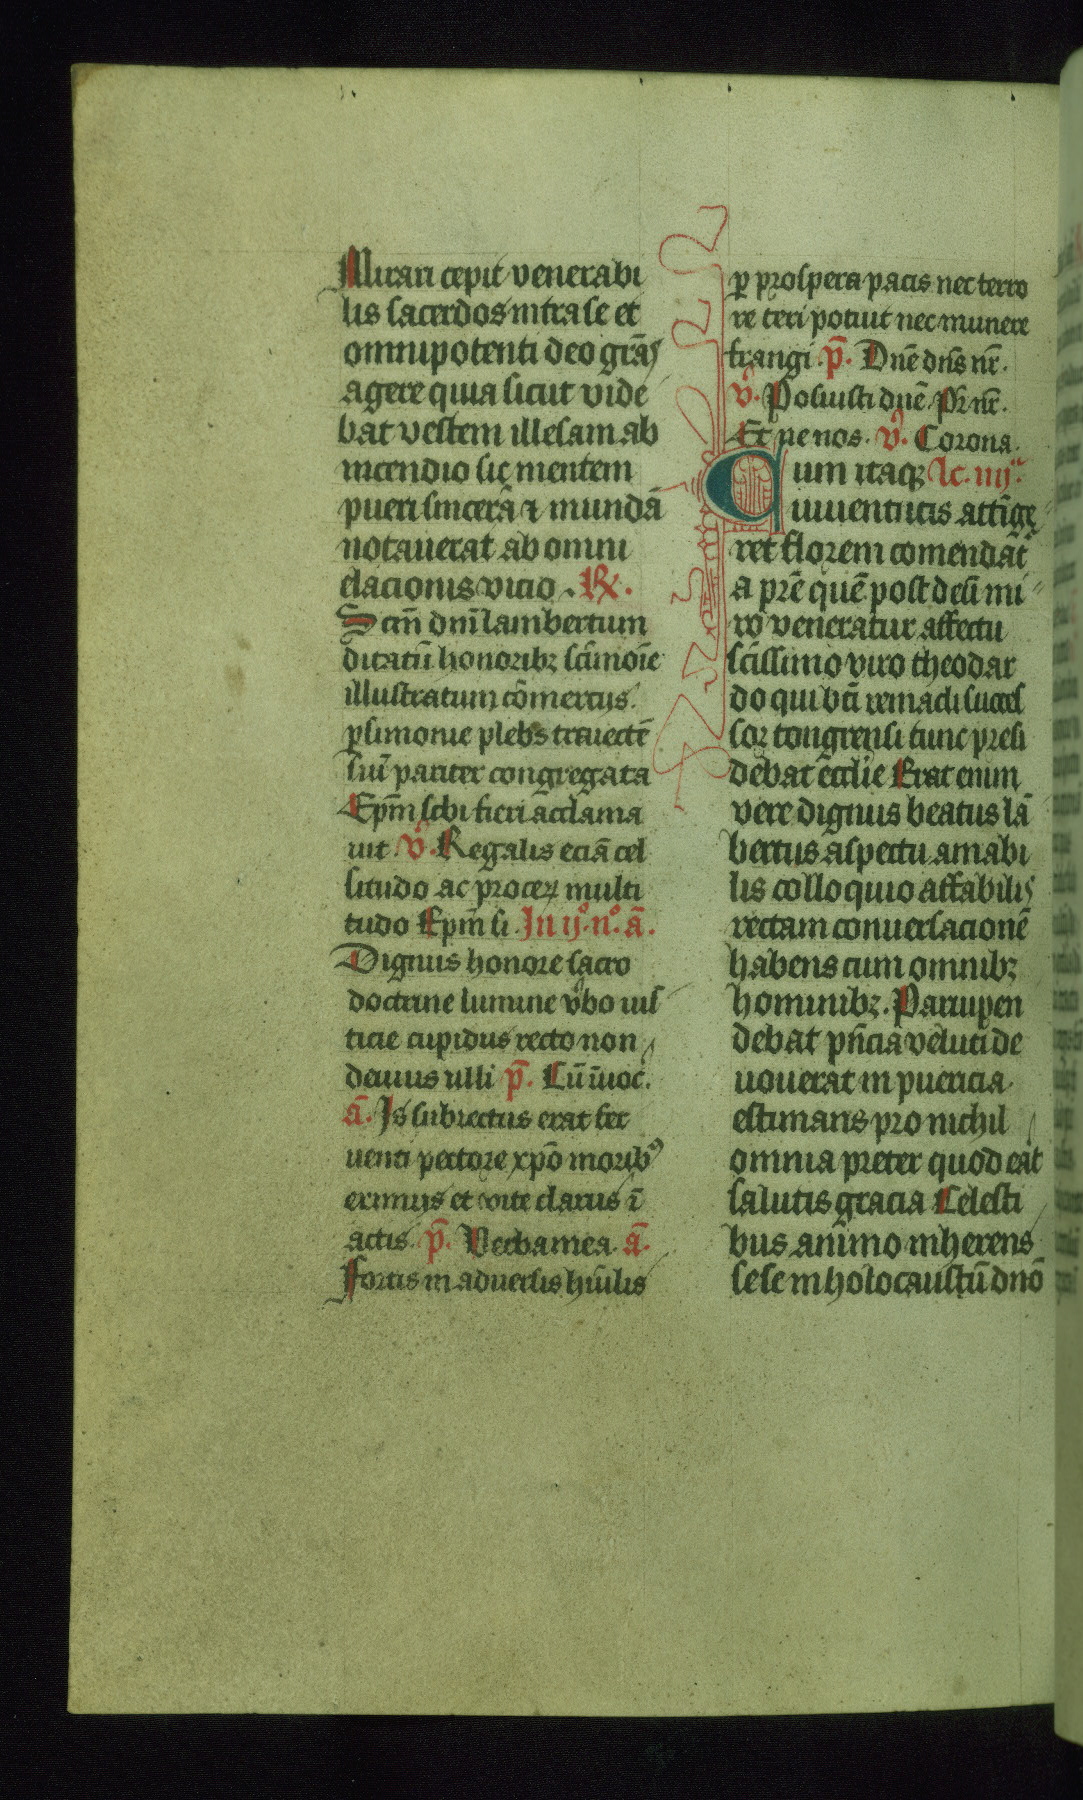 Mirari cepit venerabi
lis sacerdos intra se et
omnipotenti deo grãs
agere quia sicut vide
bat vestem illesam ab
incendio sic mentem
pueri sincerã ⁊ mundã
notauerat ab omni
elacionis vicio. R̸.
Sctm̃ dnm̃ lambertum
ditatũ honoribꝫ scĩmoĩe
illustratum cõmercijs.
ꝑsimonie plebs traiectẽ
siũ pariter congregata
Epm̃ sibi fieri acclama
uit. v̾. Regalis eciã cel
situdo ac proceꝝ multi
tudo Epm̃ si. In ijº. nº. ã.
Dignus honore sacro
doctrine lumine v̾bo ius
ticie cupidus recto non
deuius ulli p̃. Cũ ĩuoc̃.
ã. Is subiectus erat fer
uenti pectore xp̃o moribꝰ
eximijs et vite clarus ĩ
actis. p̃. Verba mea. ã.
Fortis in aduersis hũilis
ꝑ prospera pacis nec terro
re teri potuit nec munere
frangi. p̃. Dnẽ dñs nr̃.
v̾. Posuisti dnẽ. Pr̃ nr̃.
Et ne nos. v̾. Corona.
Cum itaqꝫ lc̃. iiijª.
iuuentutis attĩge
ret florem comendat͂
a prẽ quẽ post deũ mi
ro veneratur affectu
scĩssimo viro theodar
do qui bt̃i remacli succes
sor tongrensi tunc presi
debat ecclie͂ Erat enim
vere dignus beatus lã
bertus aspectu amabi
lis colloquio affabilis
rectam conuersacionẽ
habens cum omnibꝫ
hominibꝫ. Parui pen
debat pñcia veluti de
uouerat in puericia
estimans pro nichil
omnia preter quod eãt
salutis gracia Celesti
bus animo inherens
sese in holocaustũ dnõ